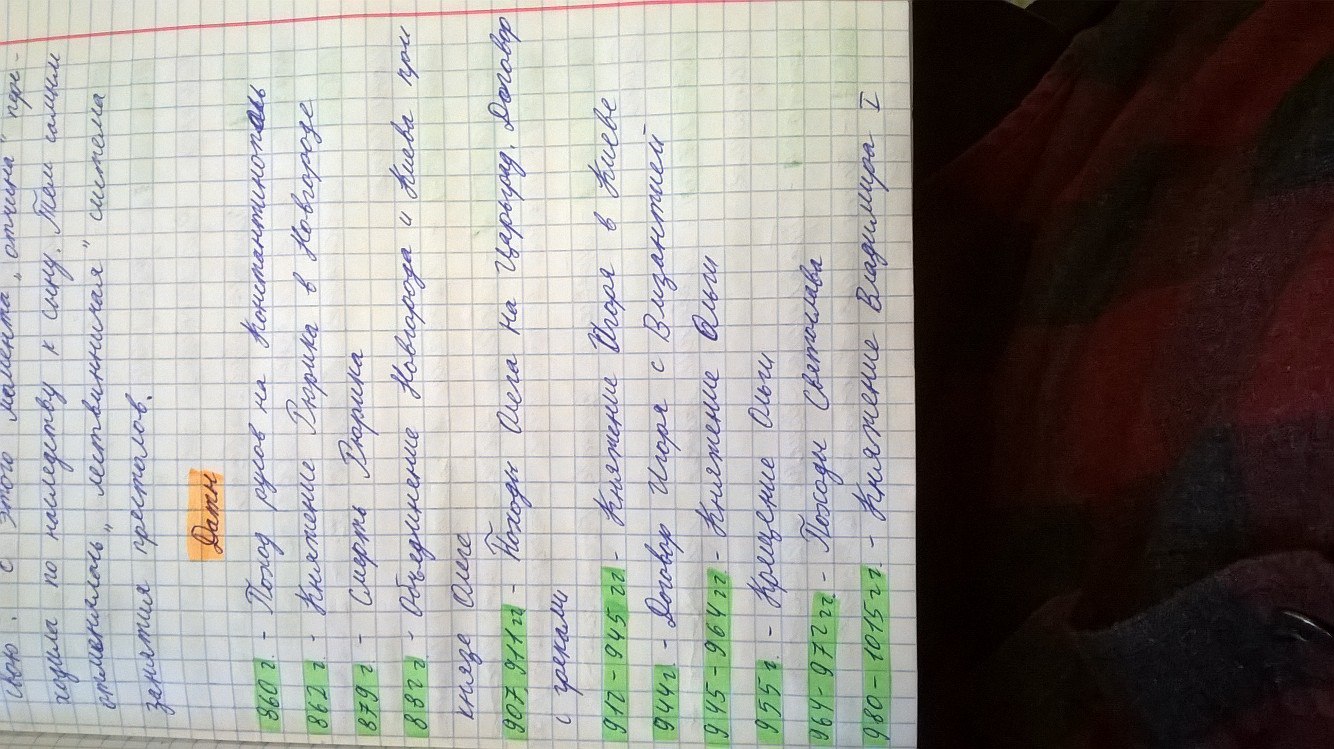 свою. С этого момента "отчина" пере-
ходила по наследству к сыну. Тем самым
отменялась "лествиничная" система
занятия престолов.
Даты
860 г. - Поход русов на Константинополь
862 г. - Княжение Рюрика в Новгороде
879 г. - Смерть Рюрика
882 г. - Объединение Новгорода и Киева при
князе Олеге
907, 911 гг - Походы Олега на Царьград. Договор
с греками
912 - 945 гг - Княжение Игоря в Киеве
944 г. - Договор Игоря с Византией
945 - 964 гг. - Княжение Ольги
955 г. - Крещение Ольги
964 - 972 гг. - Походы Святослава
980 - 1015 гг. - Княжение Владимира I